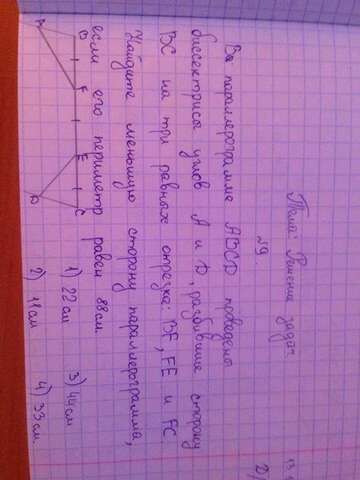 Тема: Решение задач.
№9.
В параллелограмме ABCD проведены
биссектрисы углов A и D, разбившие сторону
BC на три равных отрезка: BF, FE и FC.
Найдите меньшую сторону параллелограмма,
если его периметр равен 88 см.
1) 22 см 3) 44 см
2) 11 см 4) 33 см.
A B F E C D
13
2)